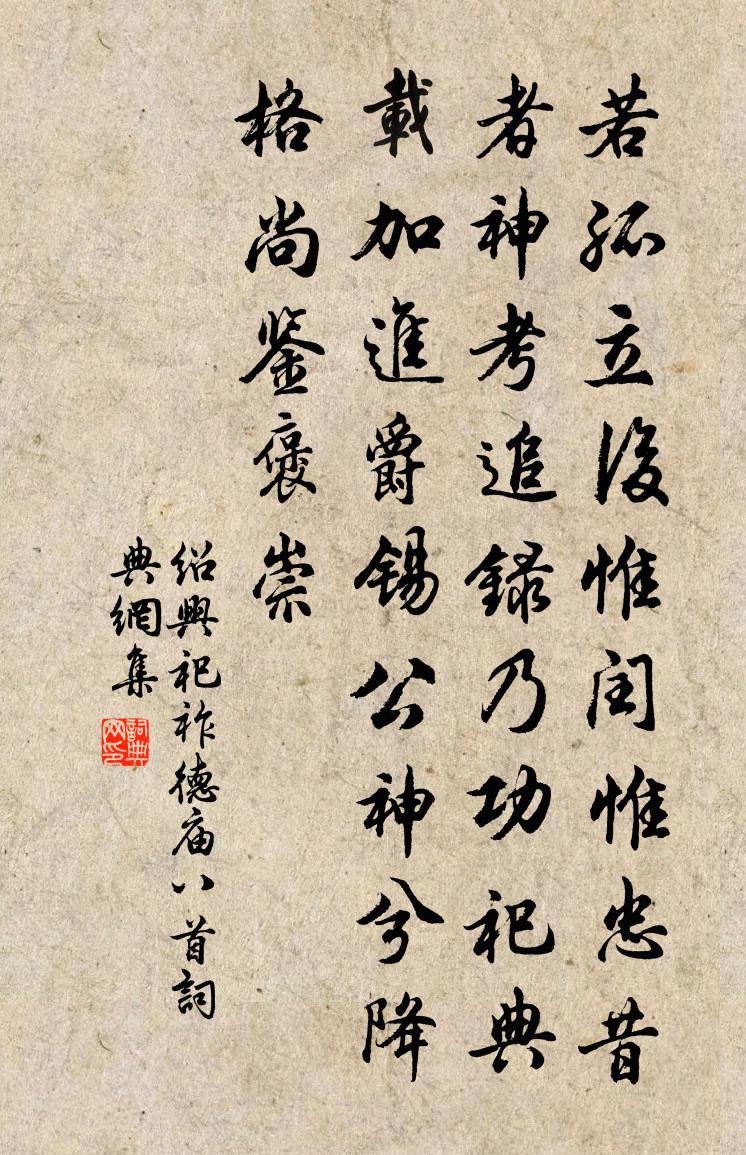 若孤立後惟閏惟忠昔
者神考追録乃功祀典
載加進爵錫公神兮降
格尚鑒褒崇
紹興祀祚德庙八首詞
典網集
詞典网印